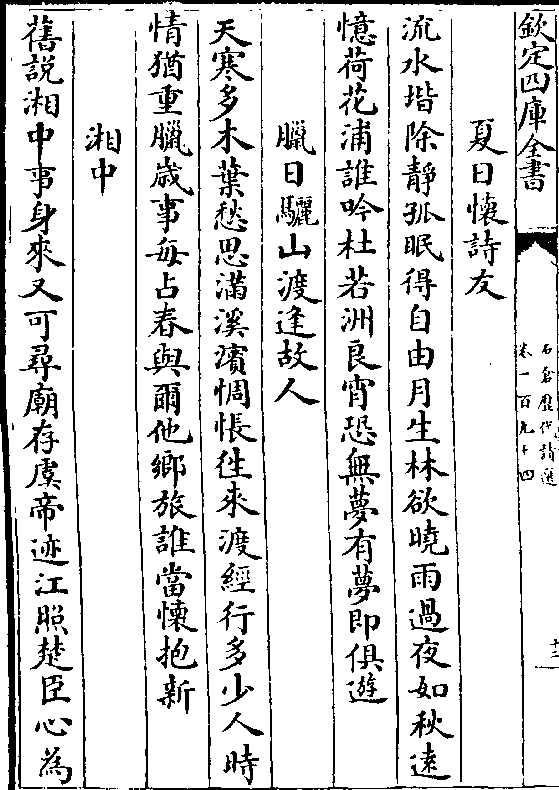 欽定四庫全書
石倉歷代詩選
卷一百九十四
十二
夏日懷詩友
流水堦除靜孤眠得自由月生林欲曉雨過夜如秋遠
憶荷花浦誰吟杜若洲良宵恐無夢有夢即俱遊
臘日驪山渡逢故人
天寒多木葉愁思滿溪濱惆悵徃來渡經行多少人時
情猶重臘歳事每占春與爾他鄉旅誰當懷抱新
湘中
舊説湘中事身來又可尋廟存虞帝迹江照楚臣心為